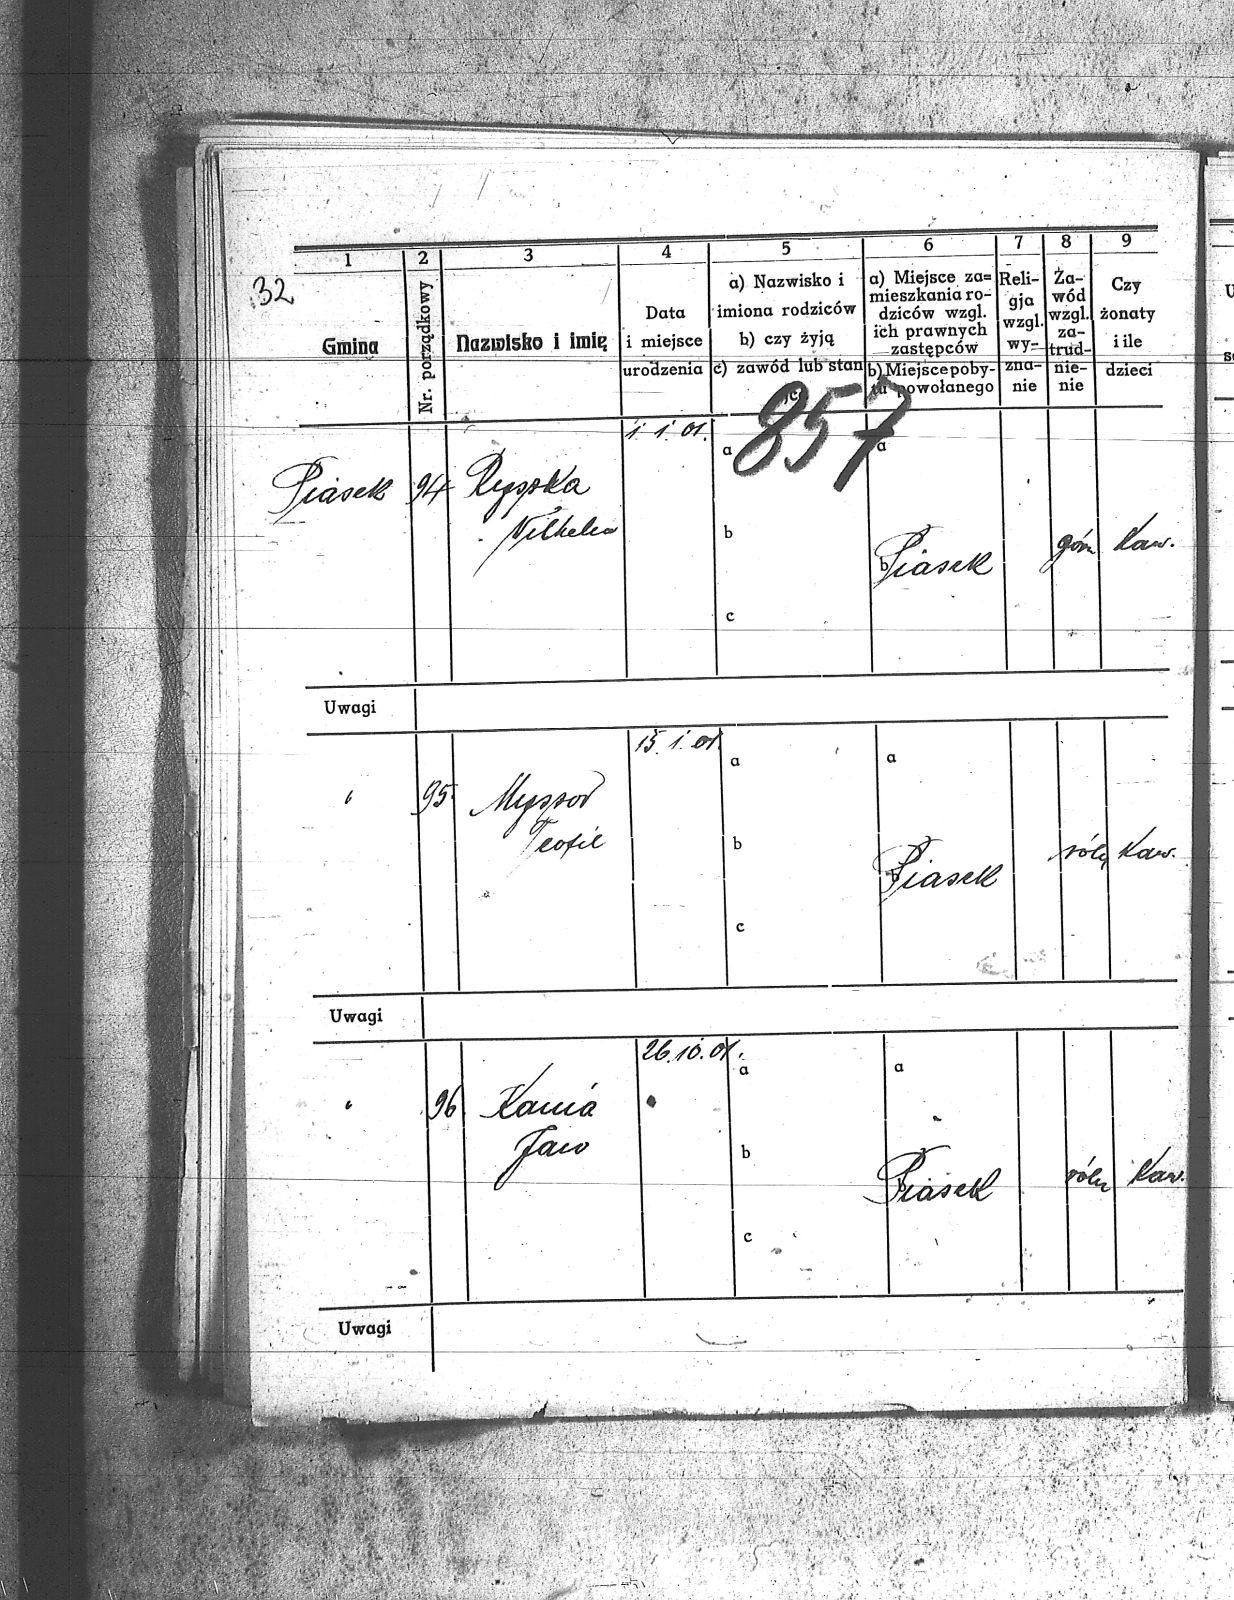 32
1 2 3 4 5 6 7 8 9
Gmina
Nr. porządkowy
Nazwisko i imię
Data
i miejsce
urodzenia
a) Nazwisko i
imiona rodziców
b) czy żyją
c) zawód lub stan
a) Miejsce za=
mieszkania ro-
dziców wzgl.
ich prawnych
zastępców
b) Miejsce poby-
tu powołanego
Reli-
gja
wzgl.
wy-
zna-
nie
Za-
wód
wzgl.
za-
trud-
nie-
nie
Czy
żonaty
i ile
dzieci
857
1.1.01.
Piasek 94 Ryszka
Wilhelm
a
b
c
a
b
Piasek
gór Kaw.
Uwagi
15.1.01.
" 95 Myszor
Teofil
a
b
c
a
b
Piasek
roln Kaw.
Uwagi
26.10.01.
" 96 Kania
Jan
a
b
c
a
Piasek
roln Kaw.
Uwagi